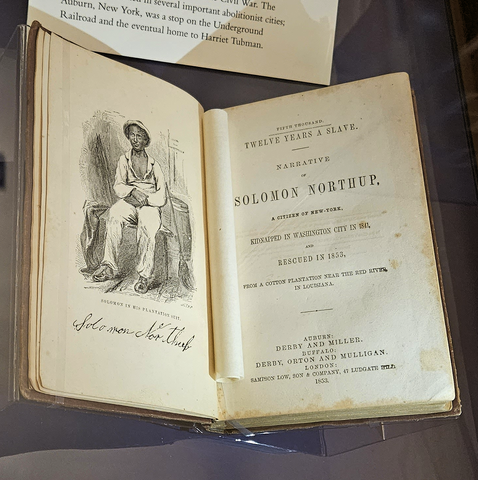 in several important abolitionist cities;
Auburn, New York, was a stop on the Underground
Railroad and the eventual home to Harriet Tubman.
SOLOMON IN HIS PLANTATION SUIT.
Solomon Northup
FIFTH THOUSAND.
TWELVE YEARS A SLAVE.
NARRATIVE
OF
SOLOMON NORTHUP,
A CITIZEN OF NEW-YORK,
KIDNAPPED IN WASHINGTON CITY IN 1841,
AND
RESCUED IN 1853,
FROM A COTTON PLANTATION NEAR THE RED RIVER,
IN LOUISIANA.
AUBURN:
DERBY AND MILLER.
BUFFALO:
DERBY, ORTON AND MULLIGAN.
LONDON:
SAMPSON LOW, SON & COMPANY, 47 LUDGATE HILL.
1853.